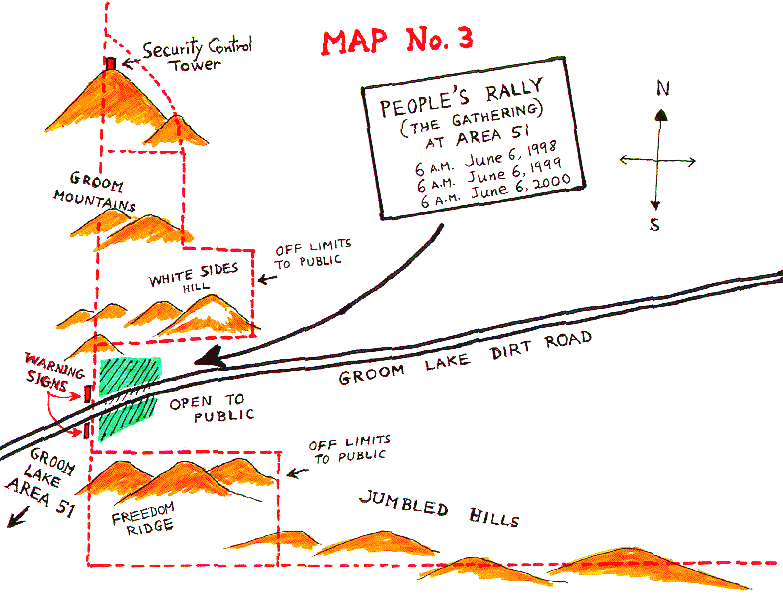 MAP No. 3
Security Control
Tower
PEOPLE'S RALLY
(THE GATHERING)
AT AREA 51
6 A.M. June 6, 1998
6 A.M. June 6, 1999
6 A.M. June 6, 2000
N
S
GROOM
MOUNTAINS
OFF LIMITS
TO PUBLIC
WHITE SIDES
HILL
WARNING
SIGNS
GROOM LAKE DIRT ROAD
OPEN TO
PUBLIC
OFF LIMITS
TO PUBLIC
GROOM
LAKE
AREA 51
FREEDOM
RIDGE
JUMBLED HILLS